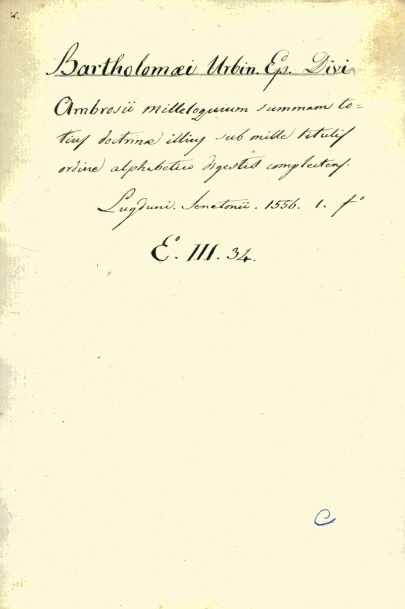 Bartholomæi Urbin. Ep. Divi
Ambrosii milleloquium summam to=
tius doctrinæ illius sub mille titulis
ordine alphabetico digestis complectens.
Lugduni. Senetonii. 1556. 1. fº
E. III. 34.
C